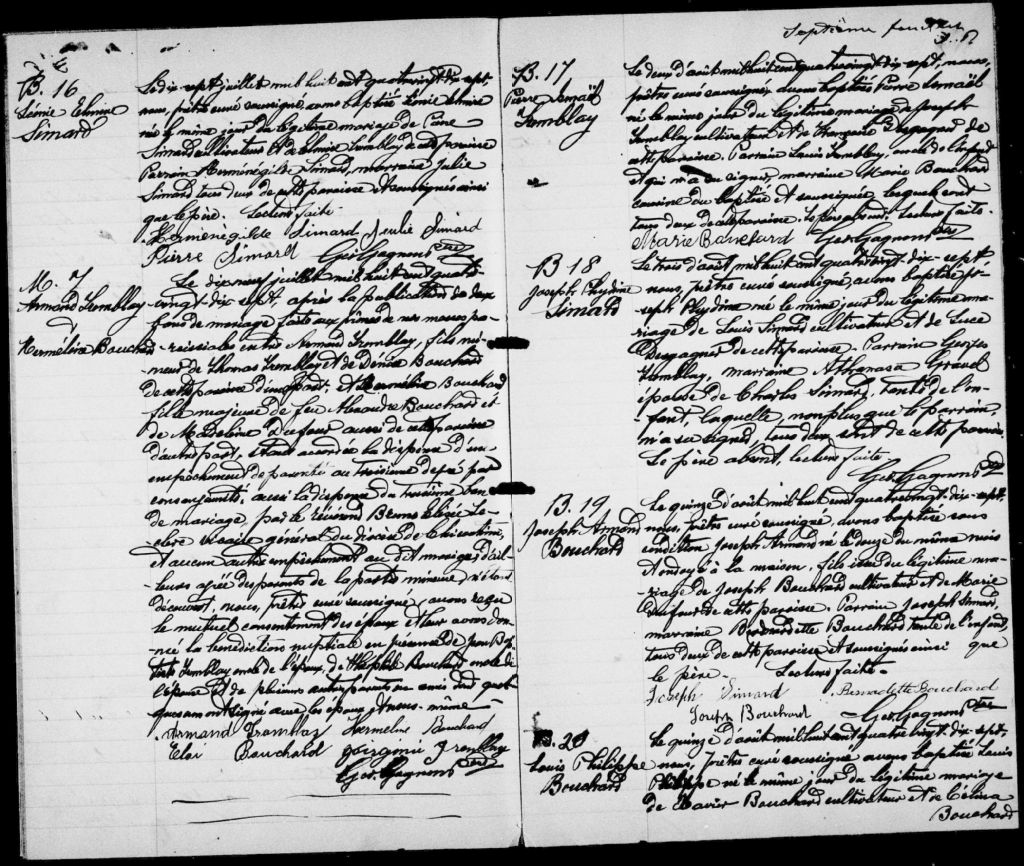 B. 16
Léonie Elmine
Simard
Le dix-sept juillet mil huit cent quatrevingt dix-sept,
nous, prêtre curé soussigné, avons baptisé Léonie Elmire
née le même jour du légitime mariage de Pierre
Simard cultivateur et de Elmire Tremblay de cette paroisse
Parrain Herménégilde Simard, marraine Julie
Simard tous deux de cette paroisse et soussignés ainsi
que le père. Lecture faite
Herménégilde Simard Julie Simard
Pierre Simard Geo. Gagnon ptre
M. 7
Armand Tremblay
&
Herméline Bouchard
Le dix-neuf juillet mil huit cent quatre
-vingt-dix-sept, après la publication de deux
bans de mariage faite aux prônes de nos messes pa-
-roissiales entre Armand Tremblay, fils mi-
neur de Thomas Tremblay et de Denise Bouchard
de cette paroisse d'une part, et Herméline Bouchard
fille majeure de feu Alexandre Bouchard et
de Madeleine Dufour aussi de cette paroisse
d'autre part, étant accordée la dispense d'em-
-pêchement de parenté au troisième degré par
consanguinité, aussi la dispense du troisième ban
de mariage, par le révérend Le-
clerc Vicaire général du diocèse de Chicoutimi,
et aucun autre empêchement au dit mariage, d'ail-
leurs agréé des parents de la partie mineure, n'étant
découvert, nous, prêtre curé soussigné, avons reçu
le mutuel consentement des époux et leur avons don-
-né la bénédiction nuptiale en présence de Jean Bte
Tremblay oncle de l'époux, de Théophile Bouchard oncle de
l'épouse et de plusieurs autres parents ou amis dont quel-
ques uns ont signé avec les époux et nous-même -
Armand Tremblay Hermeline Bouchard
Eloi Bouchard Georginie Tremblay
Geo. Gagnon ptre
Septième feuillet
B. 17
Pierre Ismaël
Tremblay
Le deux d'août mil huit cent quatrevingt dix-sept, nous,
prêtre curé soussigné, avons baptisé Pierre Ismaël
né le même jour du légitime mariage de Joseph
Tremblay cultivateur et de Françoise Desgagnés de
cette paroisse. Parrain Louis Tremblay, oncle de l'enfant
et qui n'a su signer, marraine Marie Bouchard
cousine du baptisé et soussignée, lesquels sont
tous deux de cette paroisse. Le père absent. Lecture faite.
Marie Bouchard Geo. Gagnon ptre
B 18
Joseph Phydime
Simard
Le trois d'août mil huit cent quatrevingt-dix-sept
nous, prêtre curé soussigné, avons baptisé Jo-
seph Phydime né le même jour du légitime ma-
riage de Louis Simard cultivateur et de Luce
Desgagnés de cette paroisse. Parrain Georges
Tremblay, marraine Athanasa Gravel
épouse de Charles Simard, tante de l'en-
fant, laquelle, non plus que le parrain,
n'a su signer, tous deux sont de cette paroisse.
Le père absent, lecture faite
Geo. Gagnon ptre
B. 19
Joseph Armand
Bouchard
Le quinze d'août mil huit cent quatrevingt-dix-sept,
nous, prêtre curé soussigné, avons baptisé sous
condition Joseph Armand né le douze du même mois
et ondoyé à la maison, fils issu du légitime ma-
riage de Joseph Bouchard cultivateur et de Marie
Dufour de cette paroisse. Parrain Joseph Simard,
marraine Bernadette Bouchard tante de l'enfant
tous deux de cette paroisse et soussignés ainsi que
le père. Lecture faite.
Joseph Simard Bernadette Bouchard
Joseph Bouchard Geo. Gagnon ptre
B. 20
Louis Philippe
Bouchard
Le quinze d'août mil huit cent quatre vingt-dix-sept,
nous, prêtre curé soussigné avons baptisé Louis
Philippe né le même jour du légitime mariage
de Xavier Bouchard cultivateur et de Célina
Bouchard